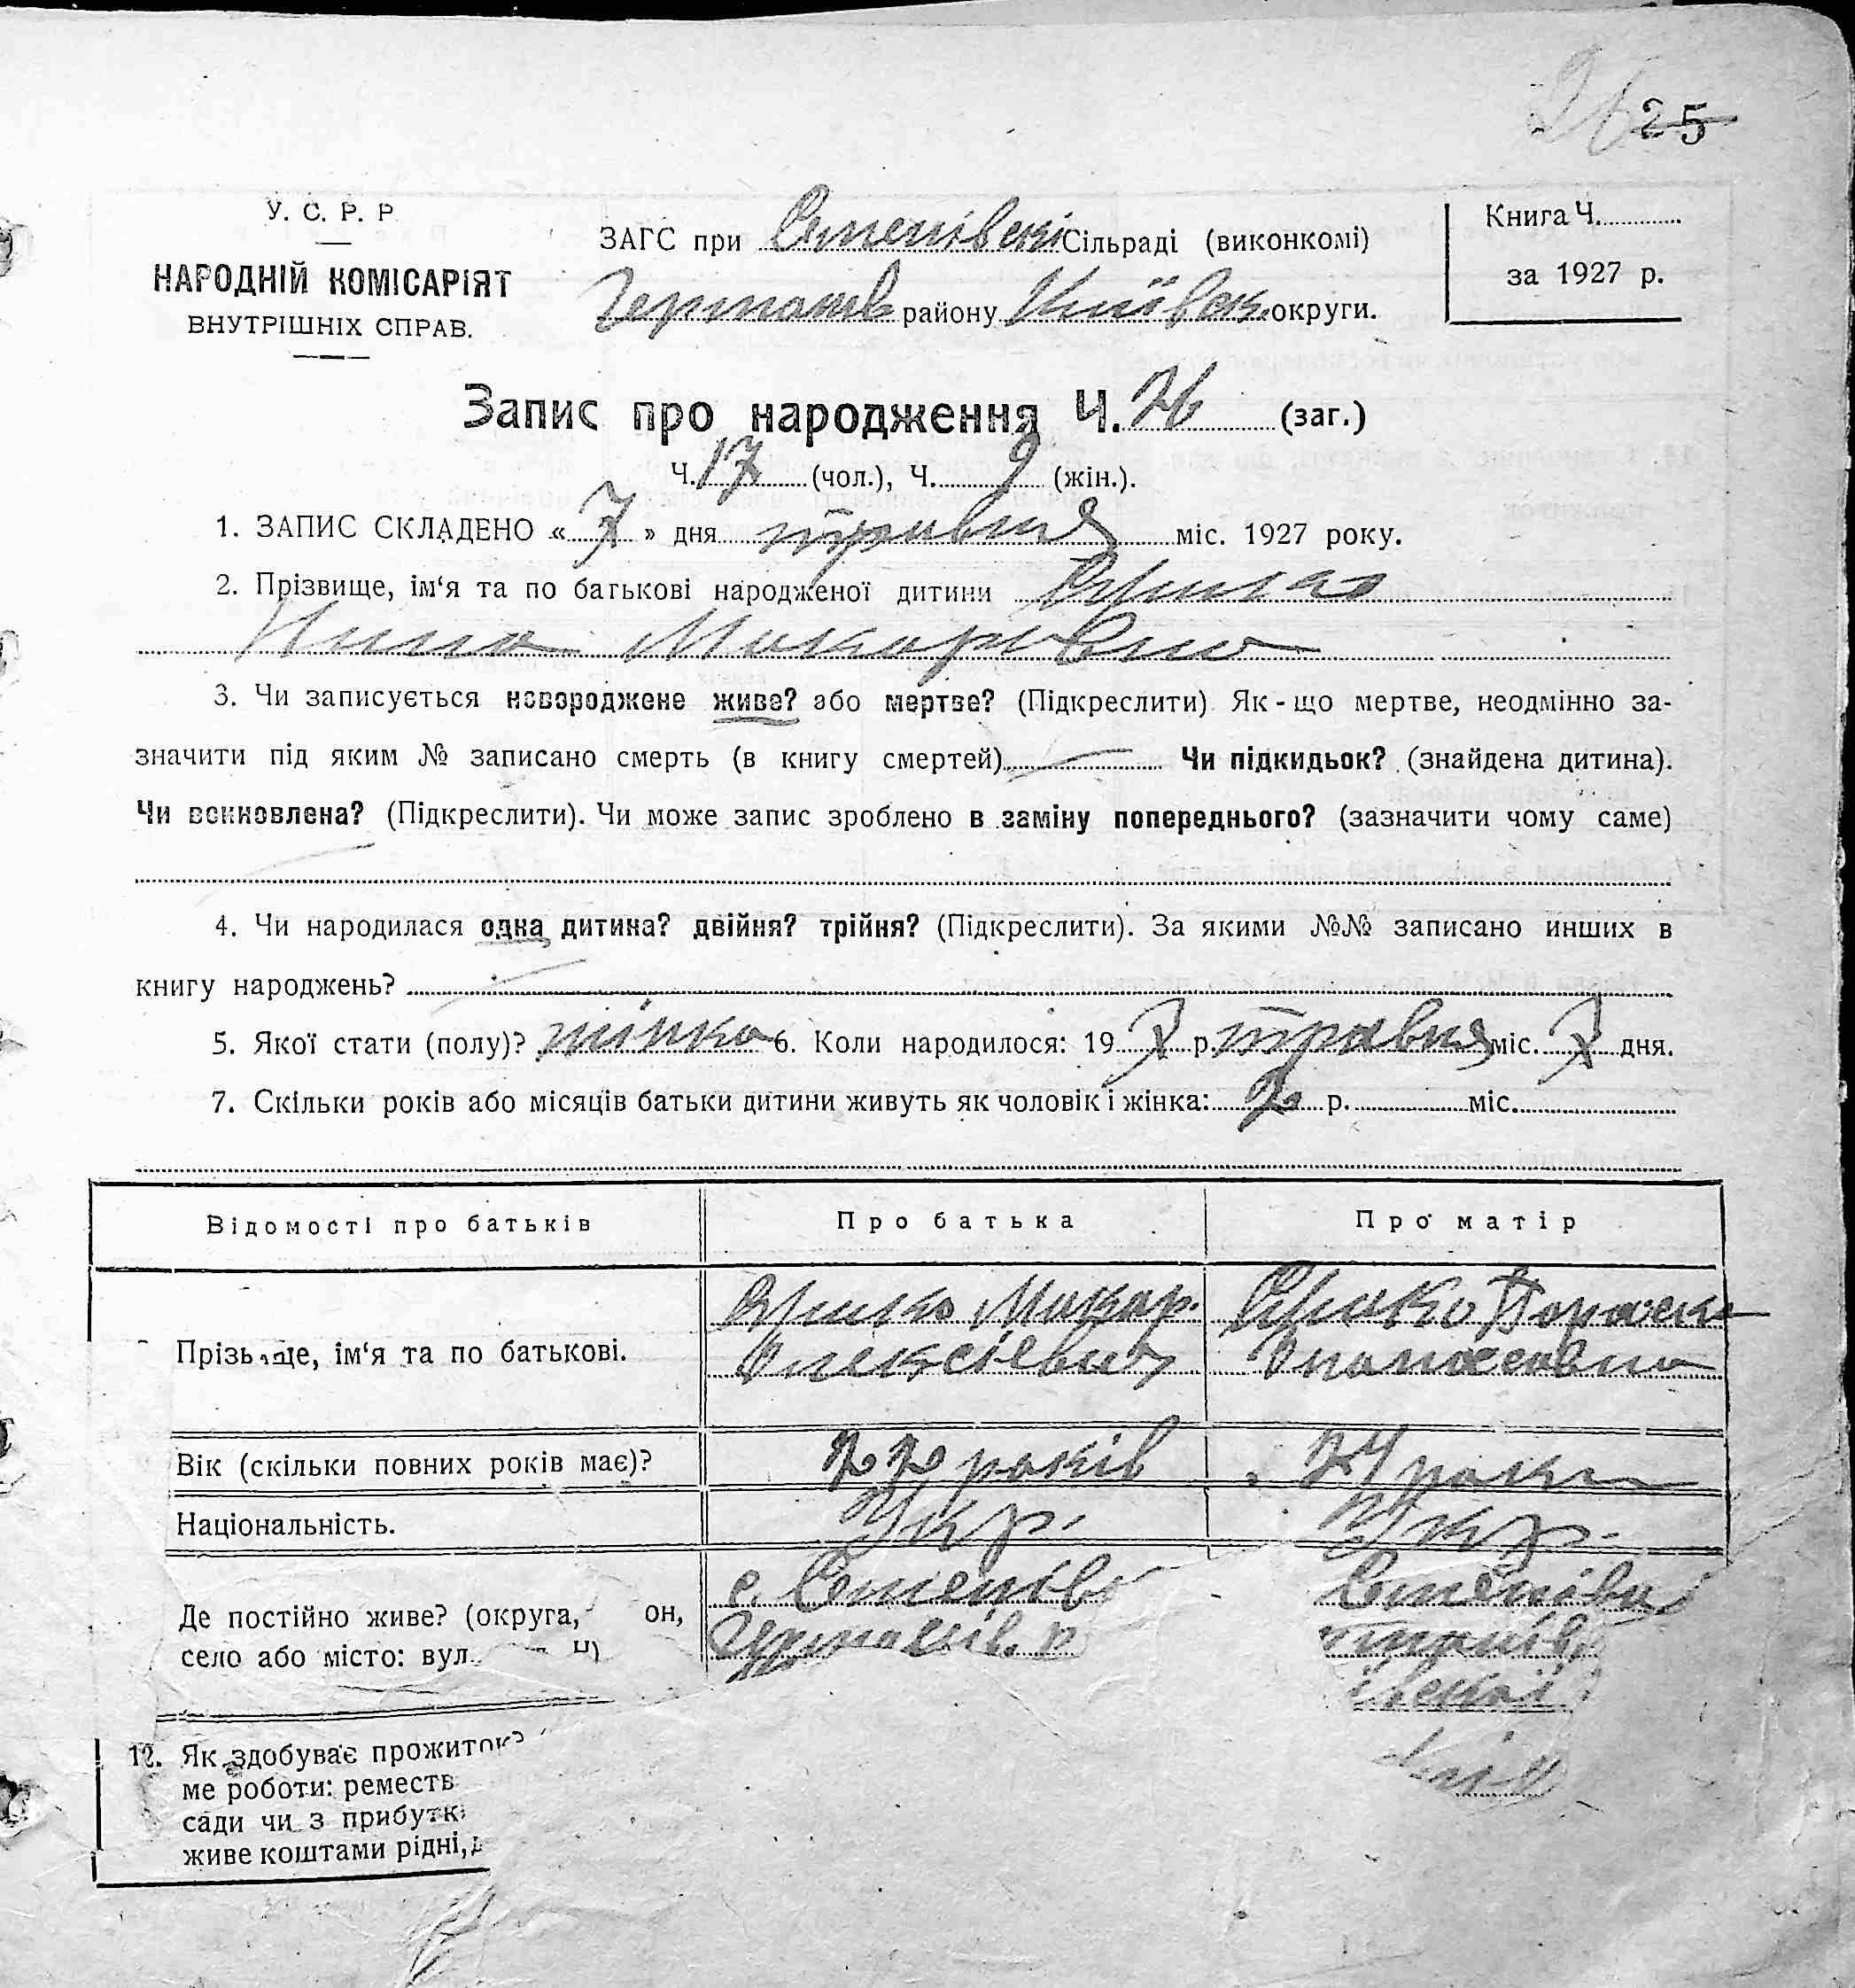 26 25
У. С. Р. Р
НАРОДНІЙ КОМІСАРІЯТ
ВНУТРІШНІХ СПРАВ.
ЗАГС при Степнівскі Сільраді (виконкомі)
району Київськ округи.
Книга Ч.
за 1927 р.
Запис про народження Ч. 26 (заг.)
Ч. 17 (чол.), Ч. 9 (жін.).
1. ЗАПИС СКЛАДЕНО « 7 » дня травня міс. 1927 року.
2. Прізвище, ім‘я та по батькові народженої дитини
Нина Макаровна
3. Чи записується новороджене живе? або мертве? (Підкреслити) Як-що мертве, неодмінно за-
значити під яким № записано смерть (в книгу смертей) Чи підкидьок? (знайдена дитина).
Чи всиновлена? (Підкреслити). Чи може запис зроблено в заміну попереднього? (зазначити чому саме)
4. Чи народилася одна дитина? двійня? трійня? (Підкреслити). За якими №№ записано инших в
книгу народжень?
5. Якої стати (полу)? жінка 6. Коли народилося: 19 7 р. травня міс. 7 дня.
7. Скільки років або місяців батьки дитини живуть як чоловік і жінка: 2 р. міс.
Відомості про батьків Про батька Про матір
Макар. Параска
Прізвище, ім‘я та по батькові. Олексієвич Опанасовна
Вік (скільки повних років має)? 22 років 24 роки
Національність. Укр. Укр.
с.
Де постійно живе? (округа, он,
село або місто: вул.
12. Як здобуває прожиток?
ме роботи: реместв
сади чи з прибутк
живе коштами рідні,